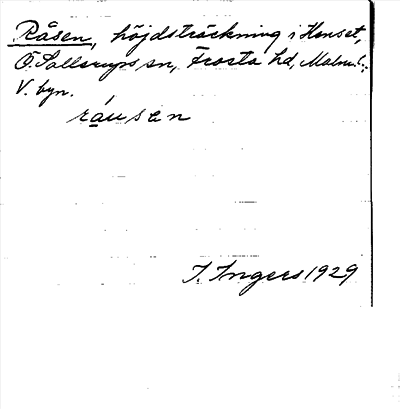 Råsen, höjdsträckning i Hunset,
Ö. Sallerups sn, Frosta hd, Malm. l.;
V. byn.
ráusen
I. Ingers 1929